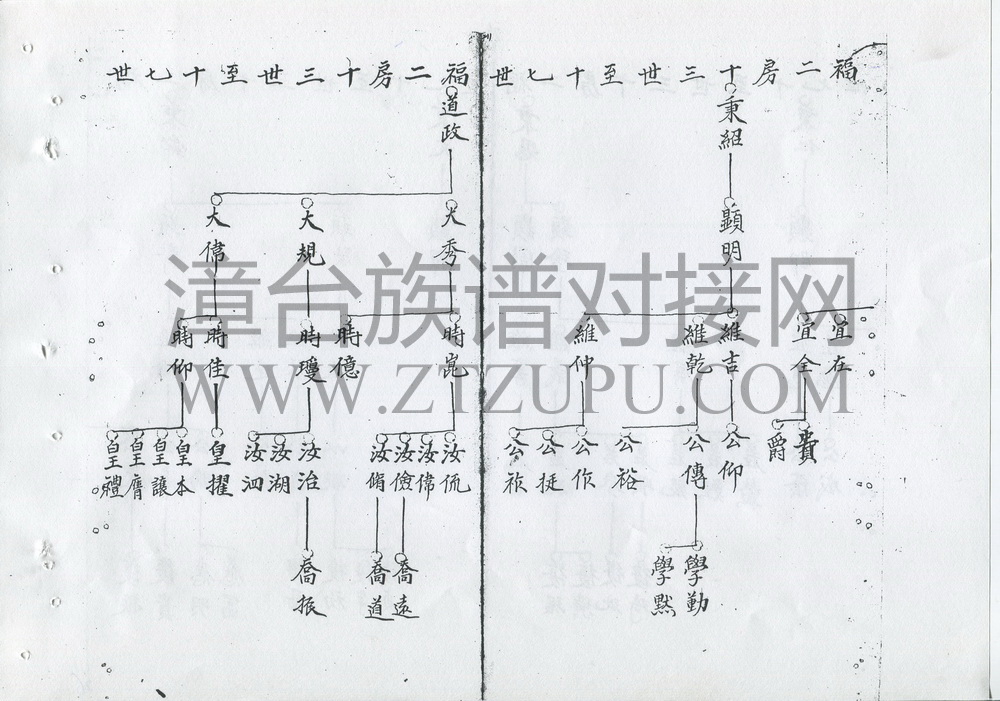 福二房十三世至十七世
秉紹
顯明
宜在
宜全
維吉
維乾
維仲
費
爵
公仰
公傳
公裕
公作
公挺
公祿
學勤
學默
福二房十三世至十七世
道政
大秀
大規
大偉
時崑
時億
時瓊
時佳
時仰
汝侃
汝偉
汝儉
汝脩
汝治
汝湖
汝泗
皇擢
皇本
皇讓
皇膺
皇禮
喬遠
喬道
喬振
漳台族谱对接网
WWW.ZTZUPU.COM